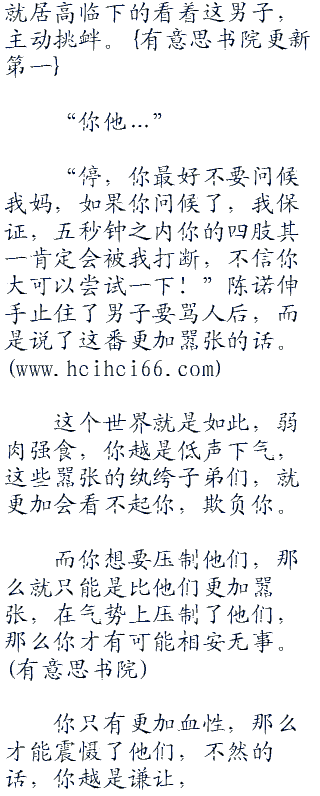 就居高临下的看着这男子，
主动挑衅。{有意思书院更新
第一}
“你他…”
“停，你最好不要问候
我妈，如果你问候了，我保
证，五秒钟之内你的四肢其
一肯定会被我打断，不信你
大可以尝试一下！”陈诺伸
手止住了男子要骂人后，而
是说了这番更加嚣张的话。
(www.hcihci66.com)
这个世界就是如此，弱
肉强食，你越是低声下气，
这些嚣张的纨绔子弟们，就
更加会看不起你，欺负你。
而你想要压制他们，那
么就只能是比他们更加嚣
张，在气势上压制了他们，
那么你才有可能相安无事。
(有意思书院)
你只有更加血性，那么
才能震慑了他们，不然的
话，你越是谦让，